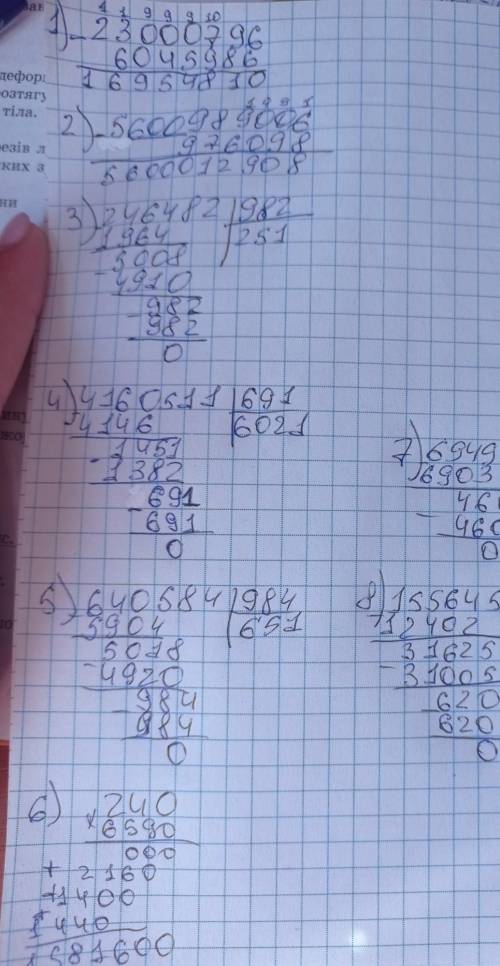 дефор
розтягу
тіла.
резів л
ких з
ни
1 1 9 9 9 10
1) - 23000796
6045986
16954810
9 9 1
2) - 5600989006
976098
5600012908
3) - 246482 | 982
1964 | 251
5008
- 4910
- 982
982
0
4) - 4160511 | 691
4146 | 6021
1451
- 1382
- 691
691
0
7) 6949
- 6903
46
- 460
0
5) - 640584 | 984
5904 | 651
5018
- 4920
- 984
984
0
8) 155645
- 12402
31625
- 31005
- 620
620
0
6) 240
x 6590
000
+ 2160
+ 1400
+ 1440
1581600